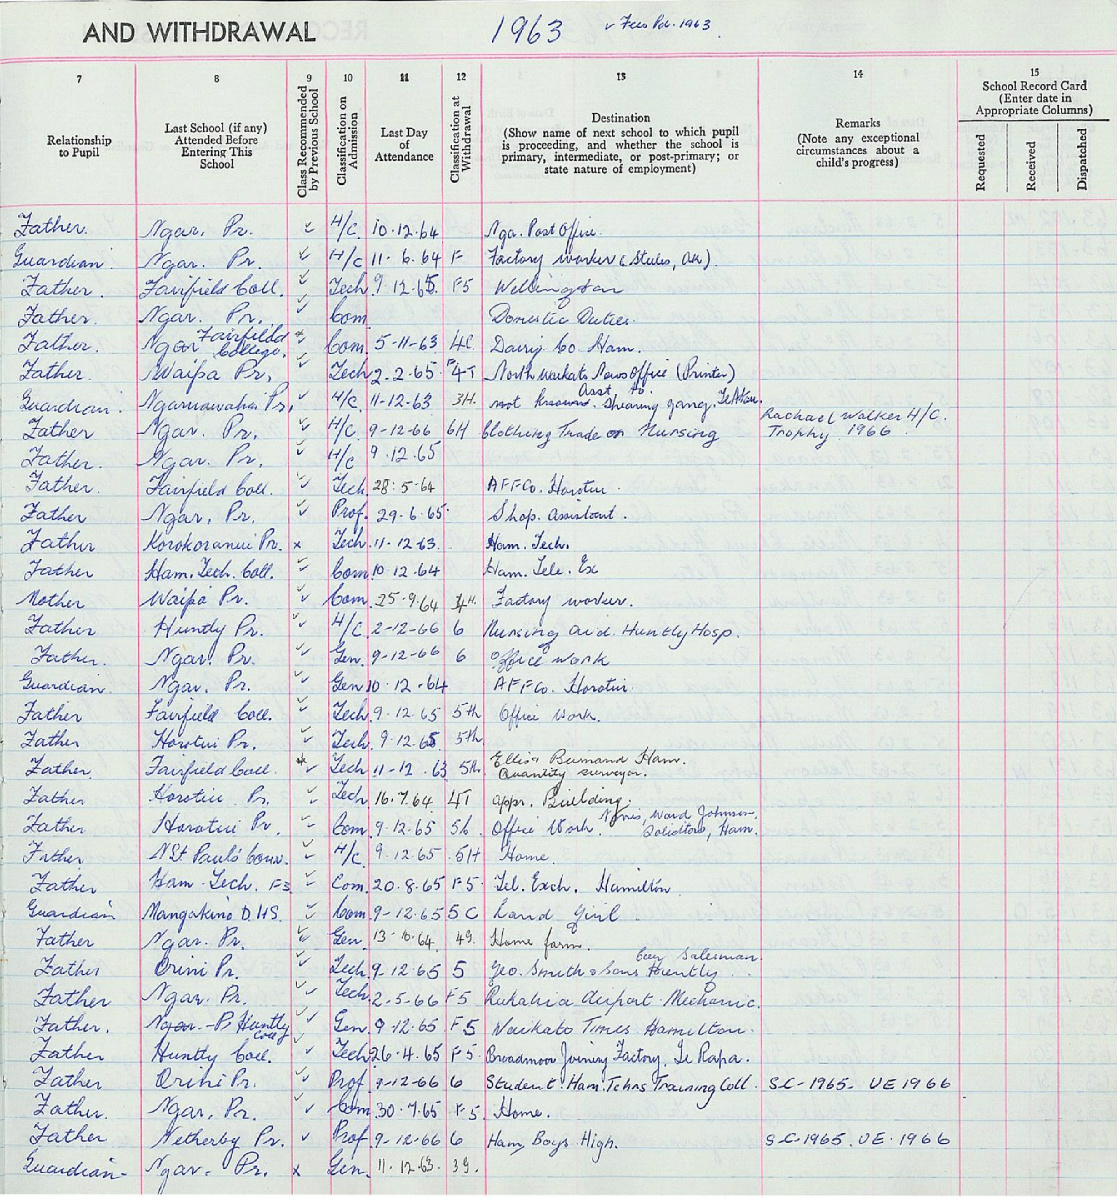 AND WITHDRAWAL 1963 ✓ Fees Pd. 1963
7 8 9 10 11 12 13 14 15
Relationship to Pupil
Last School (if any) Attended Before Entering This School
Class Recommended by Previous School
Classification on Admission
Last Day of Attendance
Classification at Withdrawal
Destination
(Show name of next school to which pupil is proceeding, and whether the school is primary, intermediate, or post-primary; or state nature of employment)
Remarks
(Note any exceptional circumstances about a child's progress)
School Record Card
(Enter date in Appropriate Columns)
Requested Received Dispatched
Father. Ngar. Pr. ✓ H/C. 10.12.64 Nga. Post Office.
Guardian Ngar. Pr. ✓ H/C 11.6.64 F Factory worker
Father. Fairfield Coll. ✓ Tech 9.12.65. F5 Wellington
Father. Ngar. Pr. ✓ Com Domestic Duties.
Father. Ngar Fairfield College. Com. 5-11-63 4C Dairy Co Ham.
Father. Waipa Pr. ✓ Tech 2.2.65 F4T North Waikato News Office (Printer)
Guardian. Ngaruawahia Pr. ✓ H/C. 11-12.63 3H. not Asst. to Shearing gang.
Father. Ngar. Pr. ✓ H/C. 9-12-66 6H Clothing Trade or Nursing Rachael Walker H/C. Trophy. 1966
Father. Ngar. Pr. ✓ H/C 9.12.65
Father. Fairfield Coll. ✓ Tech 28.5.64 AFFCo. Horotiu.
Father Ngar. Pr. ✓ Prof. 29.6.65. Shop. Assistant.
Father Korokoranui Pr. x Tech. 11-12.63. Ham. Tech.
Father Ham. Tech. Coll. ✓ Com 10.12.64 Ham. Tele. Ex
Mother Waipa Pr. ✓ Com. 25.9.64 4H. Factory worker.
Father Huntly Pr. ✓ H/C 2-12-66 6 Nursing aid. Huntly Hosp.
Father. Ngar. Pr. ✓ Gen. 9-12-66 6 Office work
Guardian. Ngar. Pr. ✓ Gen 10.12.64 AFFCo. Horotiu.
Father Fairfield Coll. ✓ Tech. 9.12.65 5th Office Work.
Father Horotiu Pr. ✓ Tech. 9.12.65 5th
Father. Fairfield Coll. * ✓ Tech 11-12.63 5th Ham. Quantity surveyor.
Father Horotiu Pr. ✓ Tech 16.7.64 4T appr. Building.
Father Horotiu Pr. ✓ Com. 9.12.65 Office Work. Ward Johnson, Solicitors, Ham.
Father St Paul's Conv. ✓ H/C. 9.12.65 5H Home.
Father Ham. Tech. F3 ✓ Com. 20.8.65 F5. Tel. Exch. Hamilton.
Guardian Mangakino D.H.S. ✓ Com. 9-12.65 5C Land Girl.
Father Ngar. Pr. ✓ Gen. 13.10.64. 4G. Home farm.
Father Orini Pr. ✓ Tech 9.12.65 5 Geo. Smith & Sons Huntly Salesman.
Father Ngar. Pr. ✓ Tech. 2.5.66 F5 Rukuhia Airport. Mechanic.
Father. Pr Huntly Coll ✓ Gen. 9.12.65 F5 Waikato Times Hamilton.
Father Huntly Coll. ✓ Tech 26.4.65 F5. Broadmoor Joinery Factory, Te Rapa.
Father Orini Pr. ✓ Prof. 9-12-66 6 Student. Ham. Tchrs Training Coll. S.C-1965. UE 1966
Father. Ngar. Pr. ✓ Com 30.7.65 F5. Home.
Father Netherby Pr. ✓ Prof. 9-12-66 6 Ham. Boys High. S.C-1965. UE. 1966
Guardian- Ngar. Pr. x Gen. 11.12.63. 3G.